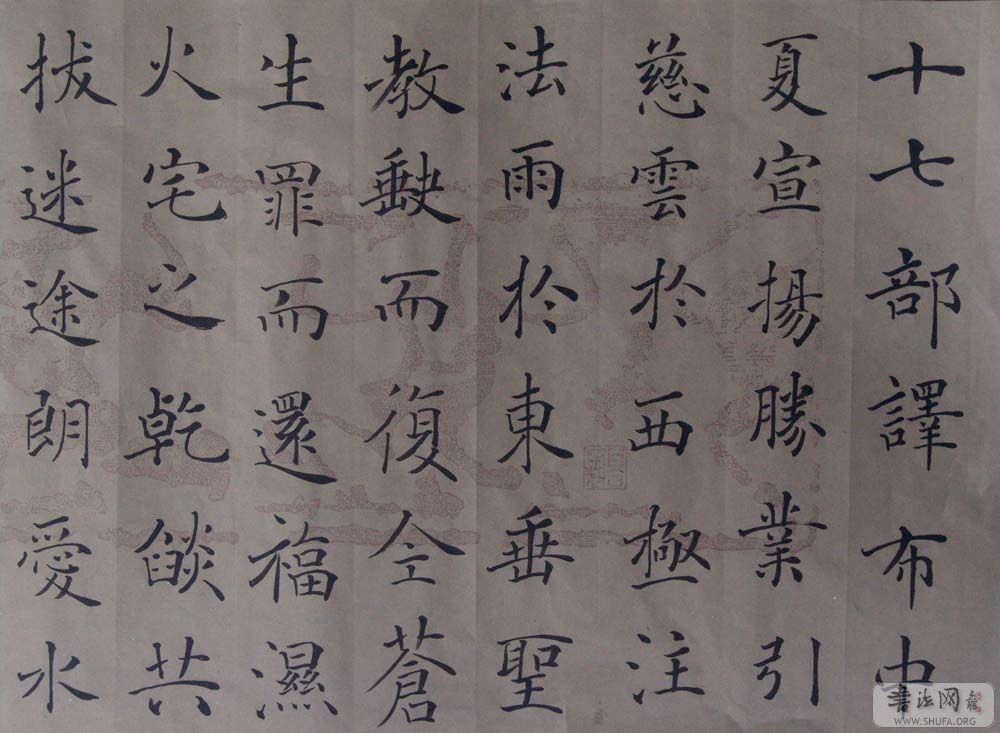 十七部譯布中
夏宣揚勝業引
慈雲於西極注
法雨於東垂聖
教缺而復仝蒼
生罪而還福濕
火宅之乾燄共
拔迷途朗愛水
書法网
WWW.SHUFA.ORG